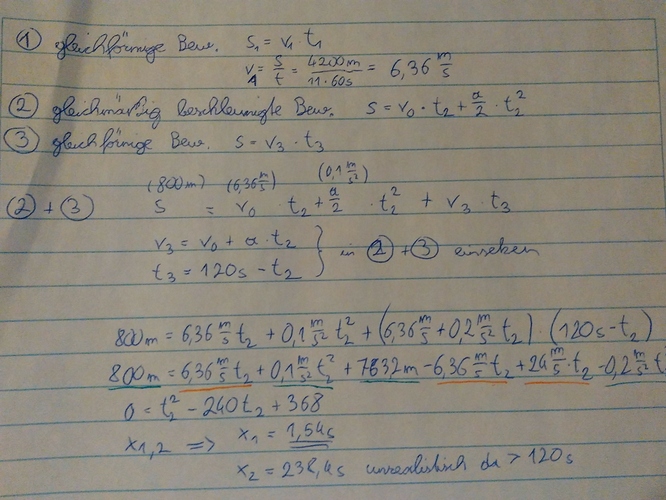 ① gleichförmige Bew. s₁ = v₁ · t₁
v₁ = s/t = 4200m/11·60s = 6,36 m/s
② gleichmäßig beschleunigte Bew. s = v₀ · t₂ + a/2 · t₂²
③ gleichförmige Bew. s = v₃ · t₃
(800m) (6,36 m/s) (0,1 m/s²)
② + ③ s = v₀ · t₂ + a/2 · t₂² + v₃ · t₃
v₃ = v₀ + a · t₂
t₃ = 120s - t₂ } in ② + ③ einsetzen
800m = 6,36 m/s t₂ + 0,1 m/s² t₂² + (6,36 m/s + 0,2 m/s² t₂) · (120s - t₂)
800m = 6,36 m/s t₂ + 0,1 m/s² t₂² + 7632m - 6,36 m/s t₂ + 24 m/s · t₂ - 0,2 m/s² t
0 = t₂² - 240t₂ + 368
x₁,₂ => x₁ = 1,54s
x₂ = 238,4s unrealistisch da > 120s